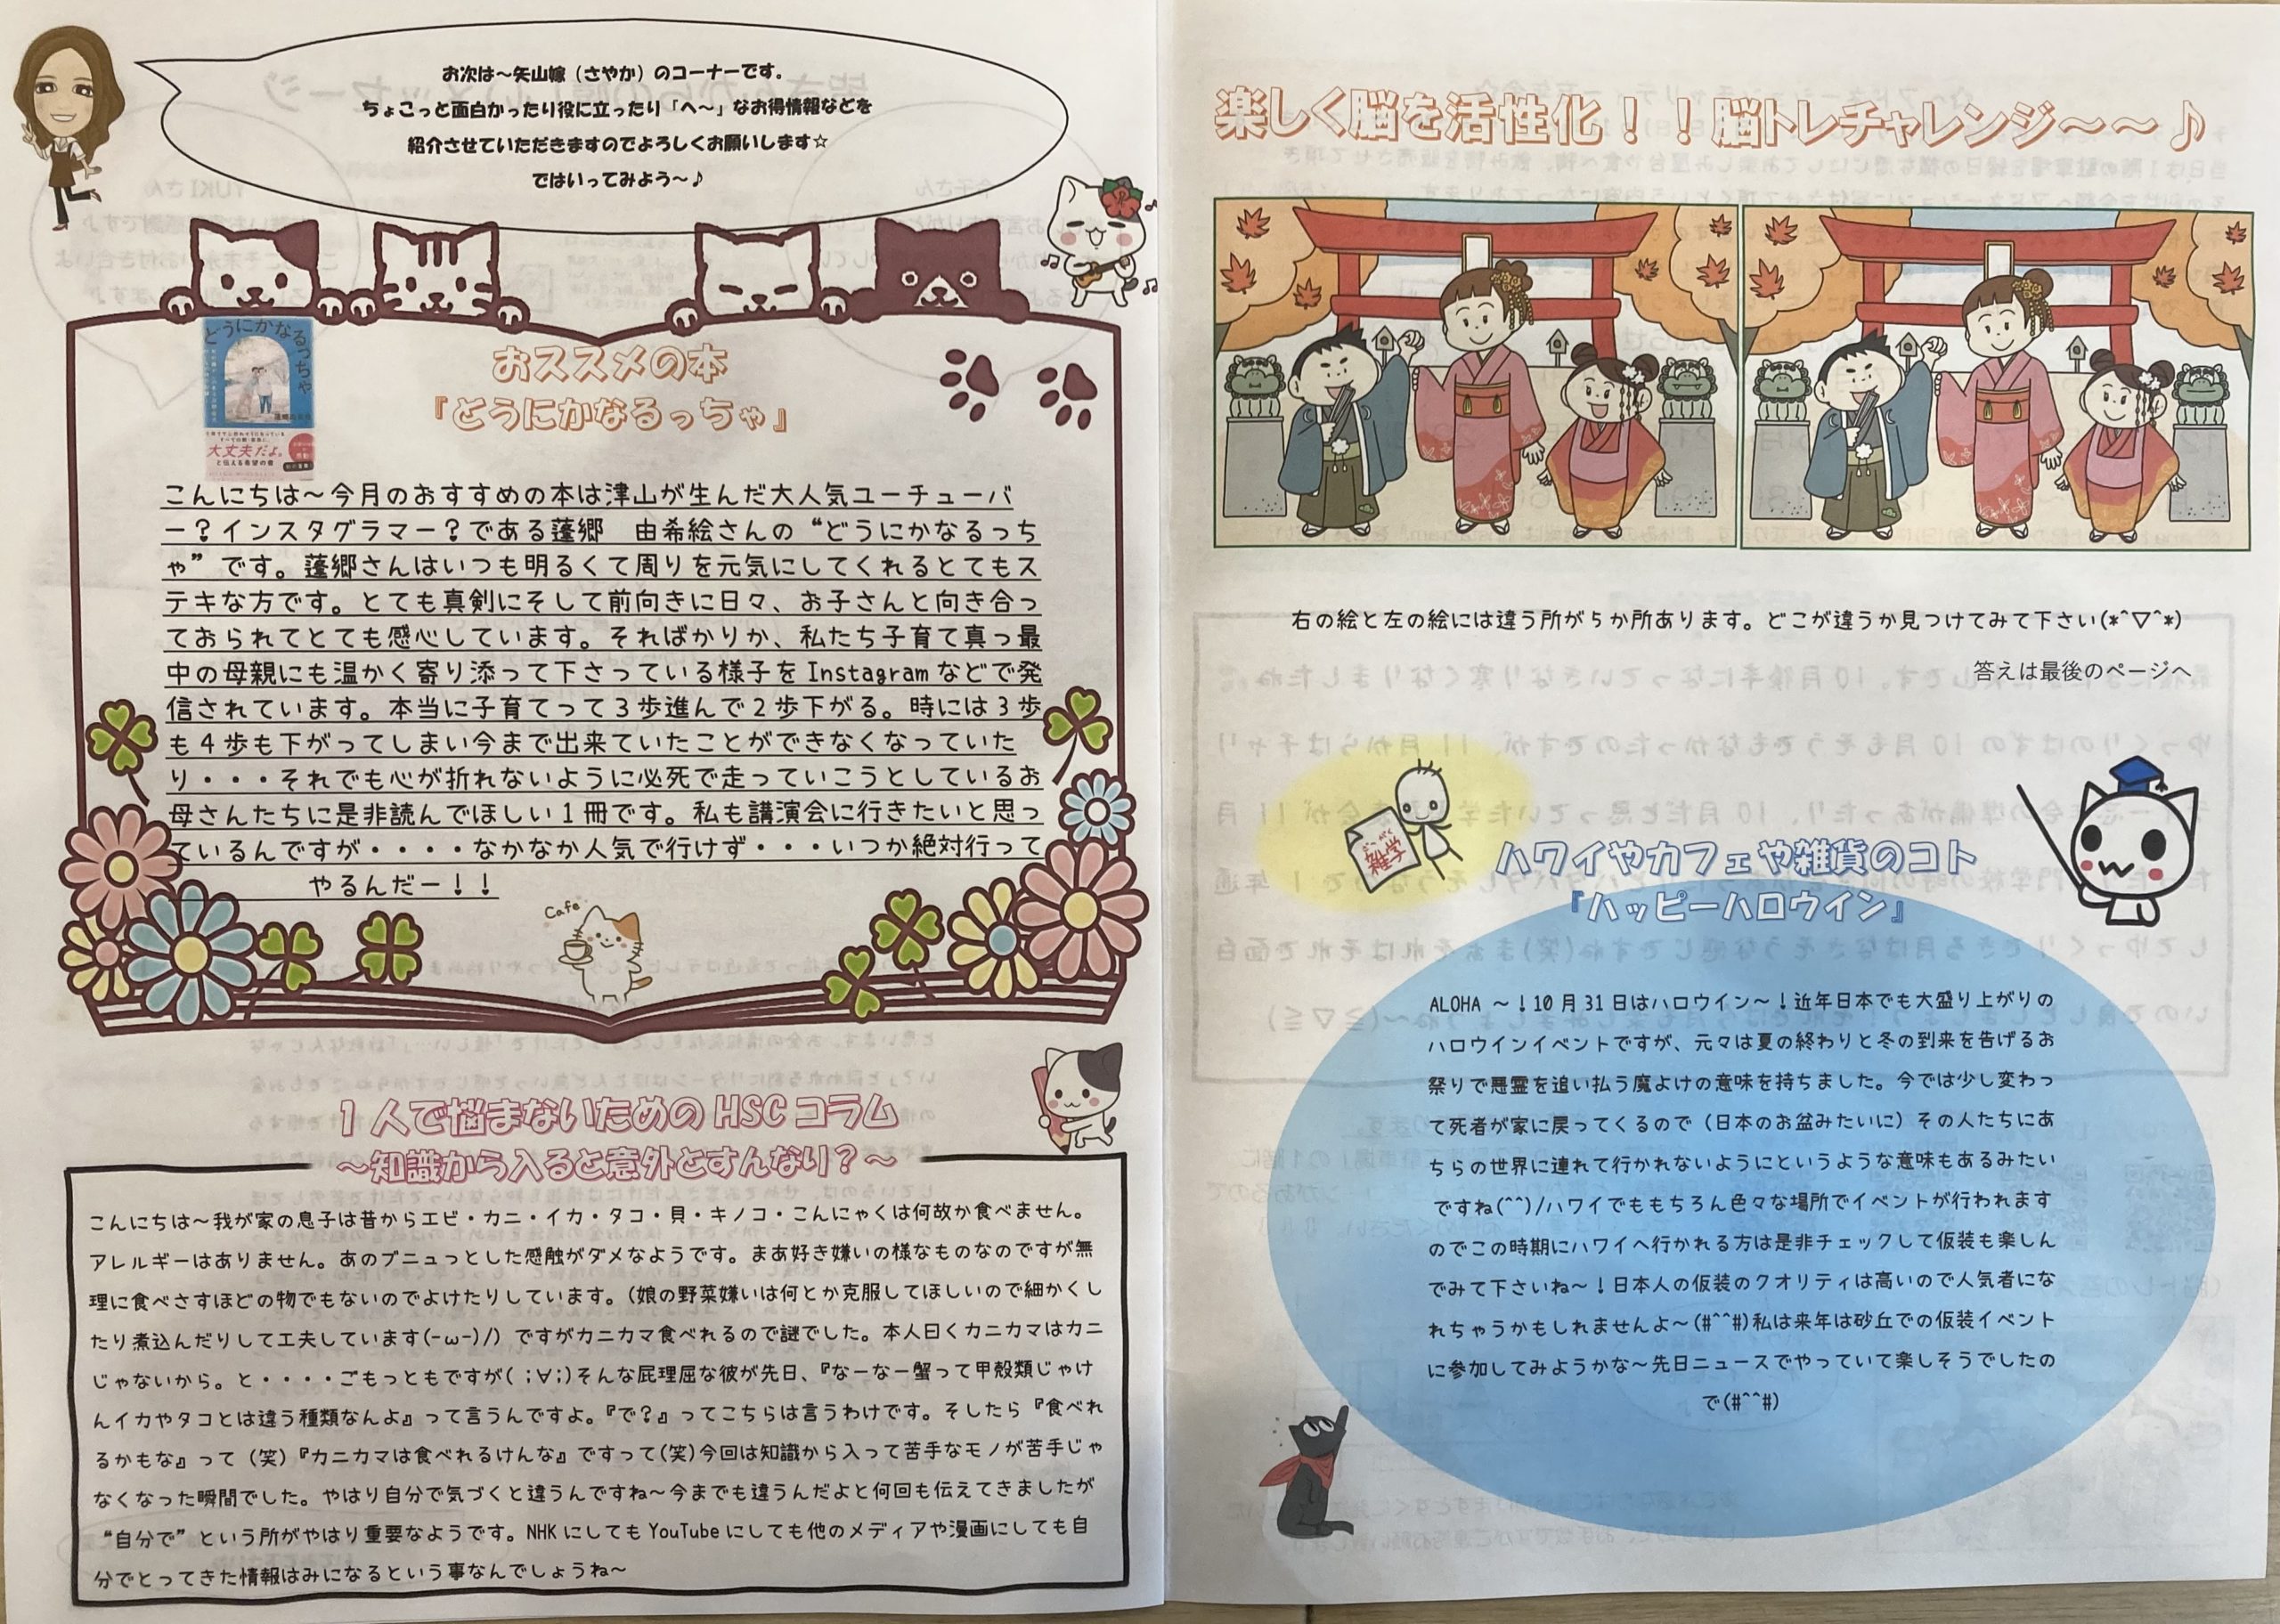 お次は～矢山嫁（さやか）のコーナーです。
ちょこっと面白かったり役に立ったり「へ～」なお得情報などを
紹介させていただきますのでよろしくお願いします☆
ではいってみよう～♪
どうにかなるっちゃ
大丈夫だよ。
と伝える希望の書
おススメの本
『どうにかなるっちゃ』
こんにちは～今月のおすすめの本は津山が生んだ大人気ユーチューバ
ー？インスタグラマー？である蓬郷　由希絵さんの“どうにかなるっち
ゃ”です。蓬郷さんはいつも明るくて周りを元気にしてくれるとてもス
テキな方です。とても真剣にそして前向きに日々、お子さんと向き合っ
ておられてとても感心しています。そればかりか、私たち子育て真っ最
中の母親にも温かく寄り添って下さっている様子を Instagram などで発
信されています。本当に子育てって３歩進んで２歩下がる。時には３歩
も４歩も下がってしまい今まで出来ていたことができなくなっていた
り・・・それでも心が折れないように必死で走っていこうとしているお
母さんたちに是非読んでほしい１冊です。私も講演会に行きたいと思っ
ているんですが・・・・なかなか人気で行けず・・・いつか絶対行って
やるんだー！！
Cafe
１人で悩まないための HSC コラム
～知識から入ると意外とすんなり？～
こんにちは～我が家の息子は昔からエビ・カニ・イカ・タコ・貝・キノコ・こんにゃくは何故か食べません。
アレルギーはありません。あのブニュっとした感触がダメなようです。まあ好き嫌いの様なものなのですが無
理に食べさすほどの物でもないのでよけたりしています。（娘の野菜嫌いは何とか克服してほしいので細かくし
たり煮込んだりして工夫しています(-ω-)/）ですがカニカマ食べれるので謎でした。本人曰くカニカマはカニ
じゃないから。と・・・・ごもっともですが( ;∀;)そんな屁理屈な彼が先日、『なーなー蟹って甲殻類じゃけ
んイカやタコとは違う種類なんよ』って言うんですよ。『で？』ってこちらは言うわけです。そしたら『食べれ
るかもな』って（笑）『カニカマは食べれるけんな』ですって(笑)今回は知識から入って苦手なモノが苦手じゃ
なくなった瞬間でした。やはり自分で気づくと違うんですね～今までも違うんだよと何回も伝えてきましたが
“自分で”という所がやはり重要なようです。NHK にしても YouTube にしても他のメディアや漫画にしても自
分でとってきた情報はみになるという事なんでしょうね～
楽しく脳を活性化！！脳トレチャレンジ～～♪
右の絵と左の絵には違う所が５か所あります。どこが違うか見つけてみて下さい(*^▽^*)
答えは最後のページへ
雑学
ハワイやカフェや雑貨のコト
『ハッピーハロウイン』
ALOHA ～！10 月 31 日はハロウイン～！近年日本でも大盛り上がりの
ハロウインイベントですが、元々は夏の終わりと冬の到来を告げるお
祭りで悪霊を追い払う魔よけの意味を持ちました。今では少し変わっ
て死者が家に戻ってくるので（日本のお盆みたいに）その人たちにあ
ちらの世界に連れて行かれないようにというような意味もあるみたい
ですね(^^)/ハワイでももちろん色々な場所でイベントが行われます
のでこの時期にハワイへ行かれる方は是非チェックして仮装も楽しん
でみて下さいね～！日本人の仮装のクオリティは高いので人気者にな
れちゃうかもしれませんよ～(#^^#)私は来年は砂丘での仮装イベント
に参加してみようかな～先日ニュースでやっていて楽しそうでしたの
で(#^^#)